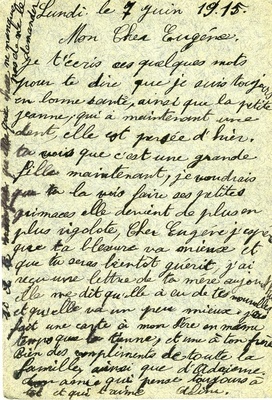 Lundi. le 7 juin 1915.
Mon Cher Eugène.
Je t'écris ses quelques mots
pour te dire que je suis toujours
en bonne santé, ainsi que la petite
jeanne, qui à maintenant une
dent, elle est percée d'hier.
tu vois que c'est une grande
fille maintenant, je voudrais
que tu la vois faire ses petites
grimaces elle devient de plus en
plus rigolote, Cher Eugène j'espère
que ta blesure va mieux et
que tu seras bientôt guérit, j'ai
reçu une lettre de ta mère aujourd
elle me dit qu'elle à eu de tes nouvelles
et qu'elle va un peu mieux, j'ai
fait une carte à mon père en même
temps que la tienne, et une à ton frère
Bien des compliments de toute la
famille, ainsi que d'Adajenne.
ton amie qui pense toujours à
toi et qui t'aime